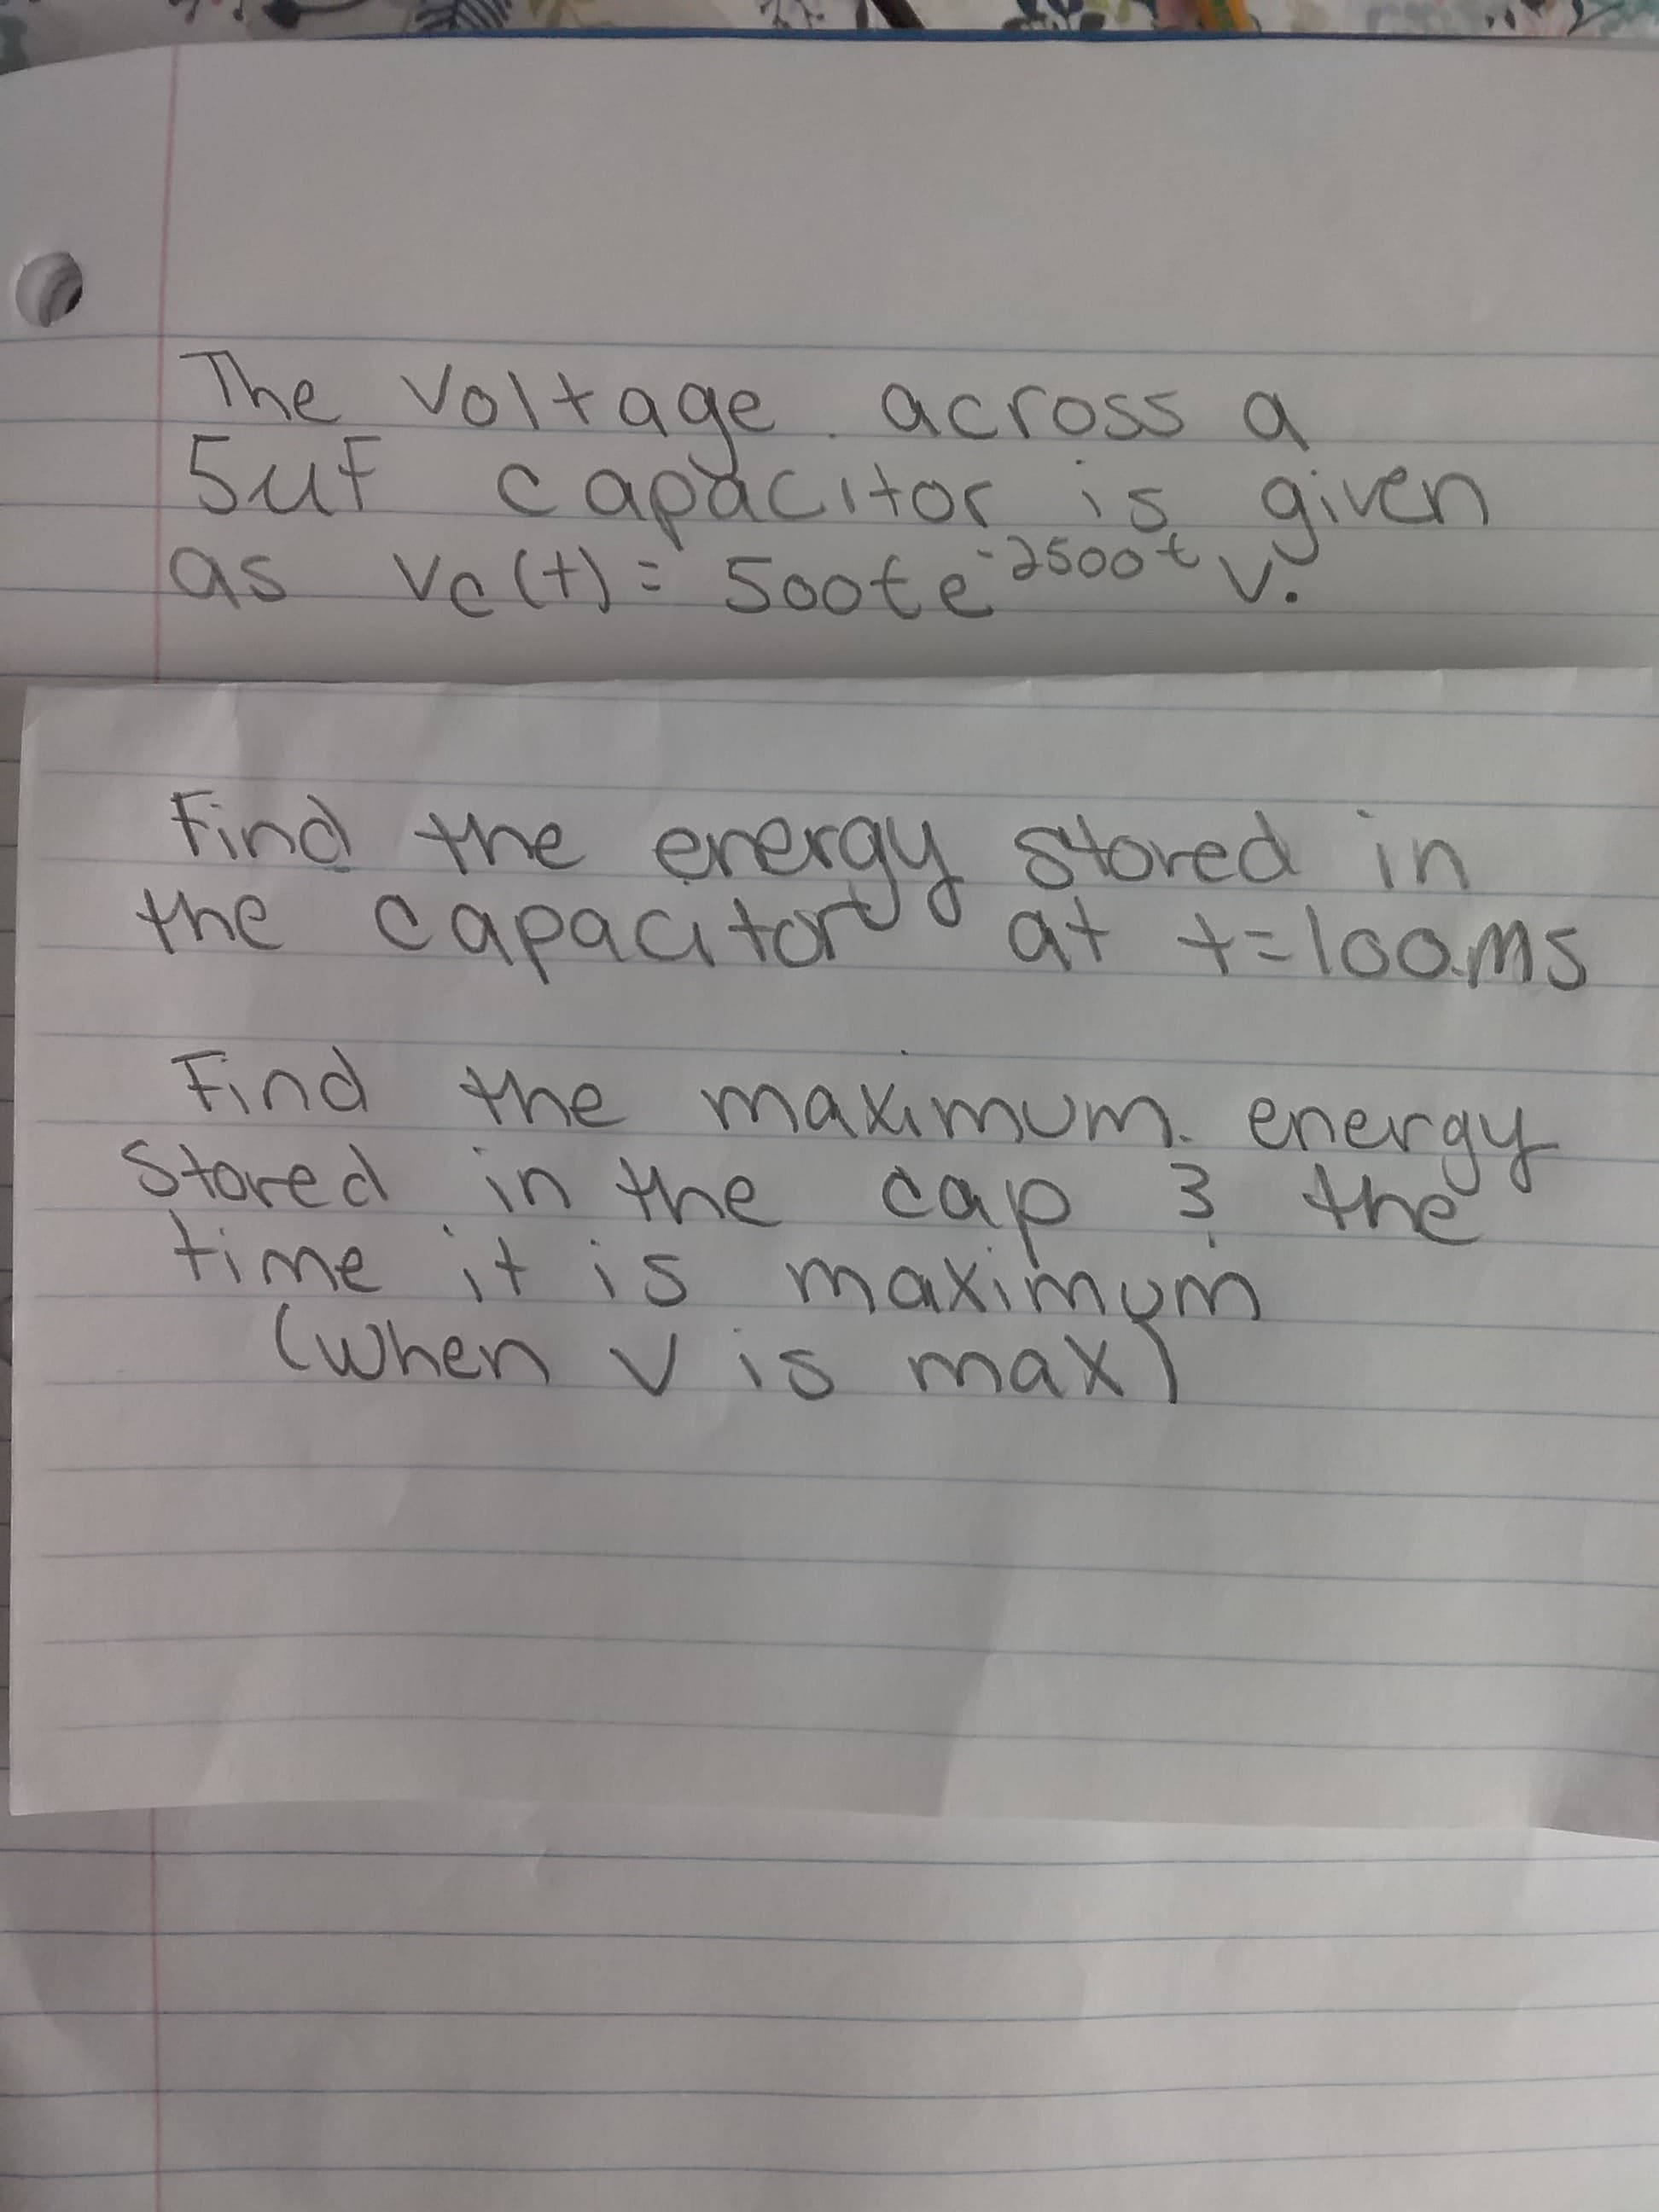 The voltage across a
5uF capacitor is given
as Vc(t) = 500te^-2500t V.
Find the energy stored in
the capacitor at t=100ms
Find the maximum energy
stored in the cap & the
time it is maximum
(when V is max)